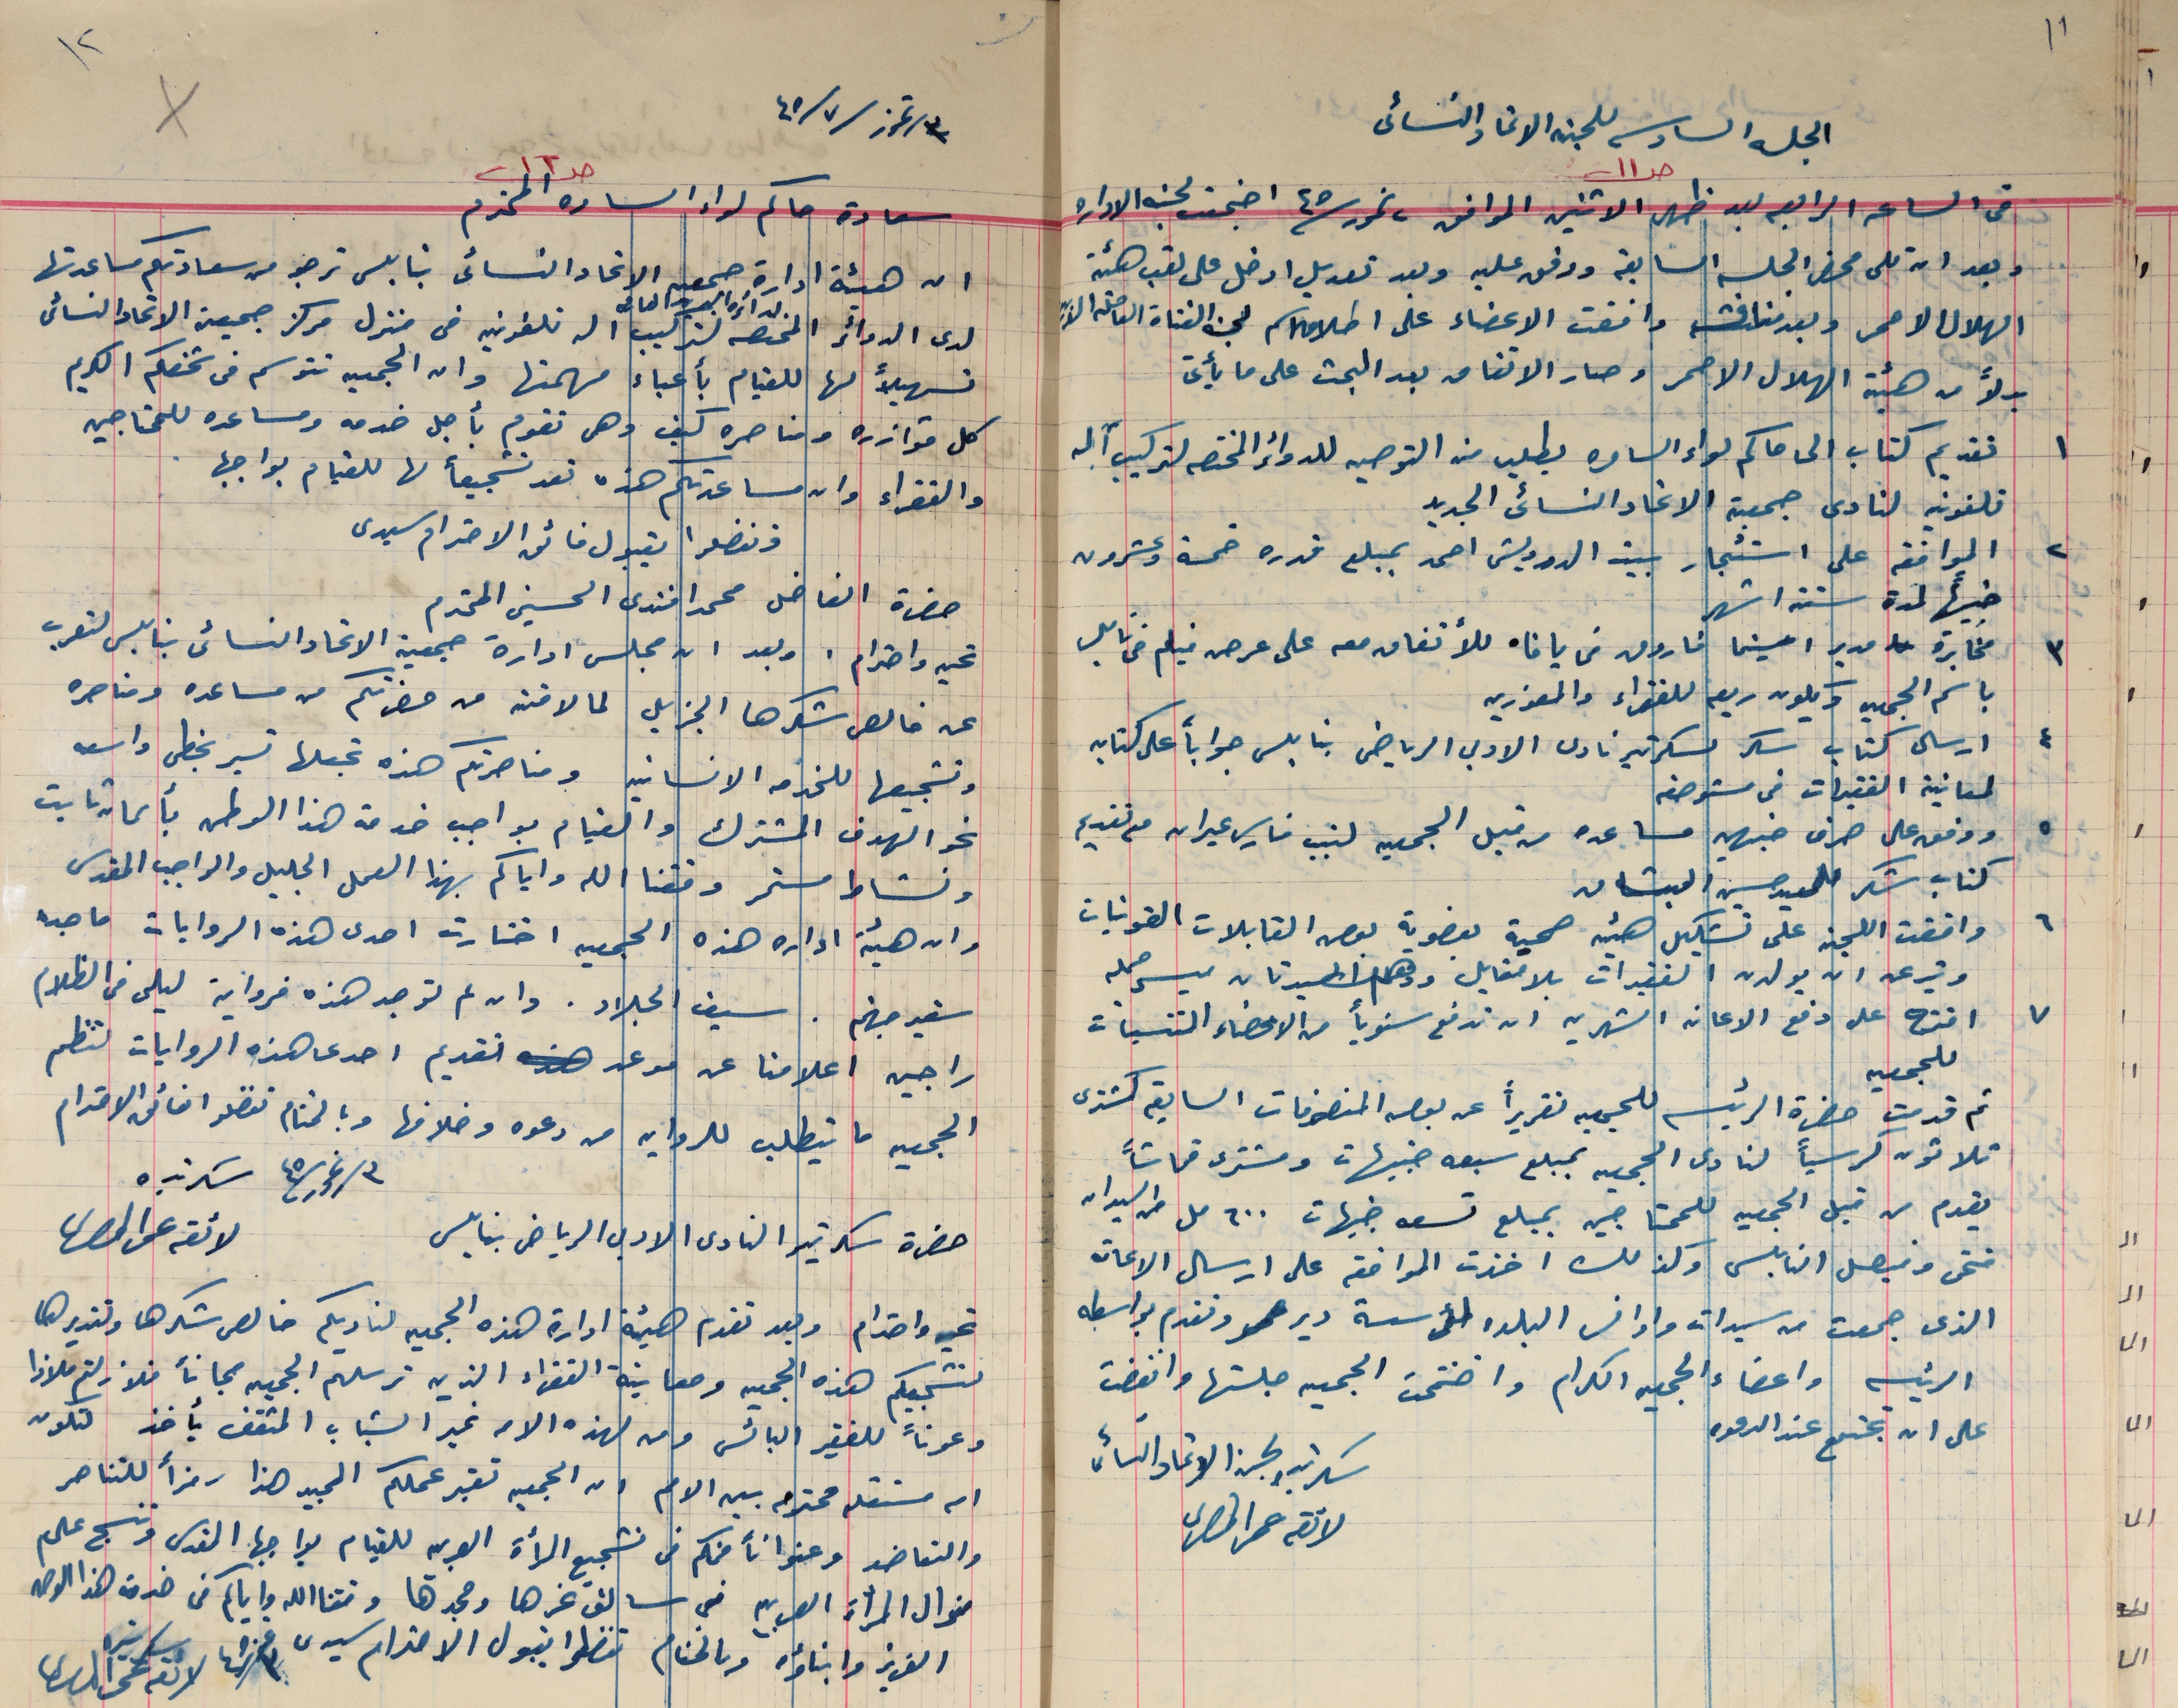 ١١
الجلسه السادسه للجنه الاتحاد النسائى
صـ ١١
فى الساعه الرابعه بعد ظهر الاثنين الموافق ٢ تموز ٤٥ اجتمعت لجنه الاداره
وبعد ان تلى محضر الجلسه السابقه ووفق عليه وبعد تعديل ادخل على لقب هيئة
الهلال الاحمر وبعد مناقشه وافقت الاعضاء على اطلاق اسم لجنه الفتاة
بدلاً من هيئة الهلال الاحمر وصار الاتفاق بعد البحث على ما يأتى
١ تقديم كتاب الى حاكم لواء السامره بطلب منه التوصيه للدوائر المختصه لتركيب آله
تلفونيه لنادى جمعية الاتحاد النسائى الجديد
٢ الموافقه على استئجار بيت الدرويش احمد بمبلغ قدره خمسة وعشرون
جنيهاً لمدة ستة اشهر
٣ مخابرة مدير سينما فاروق فى يافاه للأتفاق معه على عرض فيلم فى نابلس
باسم الجمعيه ويكون ريعه للفقراء والمعوزين
٤ ارسال كتاب شكر لسكرتير نادى الادبى الرياضى بنابلس جواباً على كتابه
لمعاينة الفقيرات فى مستوصفه
٥ ووفق على صرف جنيهين مساعده من قبل الجمعيه لنبيب عيران مع تقديم
كتاب شكر للسيد حسين
٦ وافقت اللجنه على تشكيل هيئه صحية بعضوية بعض القابلات القونيات
وتبرعن ان يولدن الفقيرات بلا مقابل وهما السيدتان
٧ اقترح على دفع الاعانه الشهريه ان تدفع سنوياً من الاعضاء المنتسبات
للجمعيه
ثم قدمت حضرة الرئيسه للجمعيه تقريراً عن بعض المصروفات السابقه كمشترى
ثلاثون كرسياً لنادى الجمعيه بمبلغ سبعه جنيهات ومشترى قماشاً
يقدم من قبل الجمعيه للمحتاجين بمبلغ تسعه جنيهات ٦٠٠ مل من السيدان
فتحى وفيصل النابلسى وكذلك اخذت الموافقه على ارسال الاعانه
الذى جمعت من سيدات واوانس البلده لمؤسسة دير عمرو وتقدم بواسطه
الرئيسه واعضاء الجمعيه الكرام واختتمت الجمعيه جلستها وانفضت
على ان تجتمع عند الدعوه
سكرتيره لجنه الاتحاد النسائى
لائقه عمر المصرى
١٢
٣/تموز/٧/٤٥
صـ ١٢
سعادة حاكم لواء السامره المحترم
ان هيئة ادارة جمعيه الاتحاد النسائى بنابلس ترجو من سعادتكم مساعدتها
لدائرة البريد العامه
لدى الدوائر المختصه لتركيب اله تلفونيه فى منزل مركز جمعية الاتحاد النسائى
تسهيلاً لها للقيام بأعباء مهمتها وان الجمعيه تتوسم فى شخصكم الكريم
كل مؤازره ومناصره كيف وهى تقوم بأجل خدمه ومساعده للمحتاجين
والفقراء وان مساعدتكم هذه تعد تشجيعاً لها للقيام بواجبها .
وتفضلوا بقبول فائق الاحترام سيدى
حضرة الفاضل محمد افندى الحسينى المحترم
تحيه واحترام ، وبعد ان مجلس ادارة جمعية الاتحاد النسائى بنابلس لتعرب
عن خالص شكرها الجزيل لما لاقته من حضرتكم من مساعده ومناصره
وتشجيعها للخدمه الانسانيه ومناصرتكم هذه تجعلها تسير بخطى واسعه
نحو الهدف المشترك والقيام بواجب خدمة هذا الوطن بأيمان ثابت
ونشاط مستمر وفقنا الله واياكم بهذا العمل الجليل والواجب المقدس
وان هيئة اداره هذه الجمعيه اختارت احدى هذه الروايات ماجده
سفير جهنم . سيف الجلاد . وان لم توجد هذه فرواية ليلى فى الظلام
راجين اعلامنا عن موعد تقديم احدى هذه الروايات لتنظم
الجمعيه ما يتطلب للروايه من دعوه وخلافها وبالختام تفضلوا فائق الاحترام
٣/تموز/٤٥ سكرتيره
لائقه عمر المصرى
حضرة سكرتير النادى الادبى الرياضى بنابلس
تحيه واحترام وبعد تقدم هيئة ادارة هذه الجمعيه لناديكم خالص شكرها وتقديرها
لتشجيعكم هذه الجمعيه ومعاينة الفقراء الذين ترسلهم الجمعيه مجاناً فلا زلتم ملاذا
وعوناً للفقير البائس ومن لهذه الامه غير الشباب المثقف يأخذ لتكون
امه مستقله محترمه بين الامم ان الجمعيه تعتبر عملكم المجيد هذا رمزاً للتناصر
والتعاضد وعنواناً منكم فى تشجيع المرأة العربيه للقيام بواجبها المقدس وتنسج على
منوال المرأة العربيه فى سالف عزها ومجدها وفقنا الله واياكم فى خدمة هذا الوطن
العزيز وابناؤه وبالختام تفضلوا بقبول الاحترام سيدى
سكرتيره
لائقه عمر المصرى